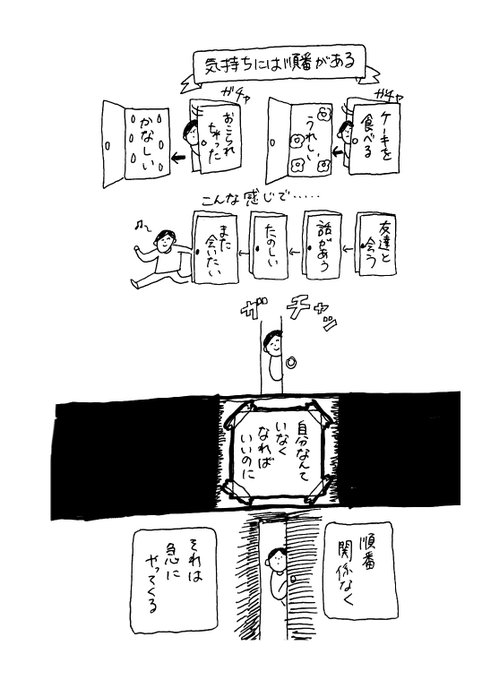 気持ちには順番がある
ガチャ
ケーキを
食べる
うれしい
ガチャ
おこられ
ちゃった
かなしい
こんな感じで・・・・・
友達と
会う
話があう
たのしい
また
会いたい
ガチャッ
自分なんて
いなく
なれば
いいのに
順番
関係なく
それは
急に
やってくる